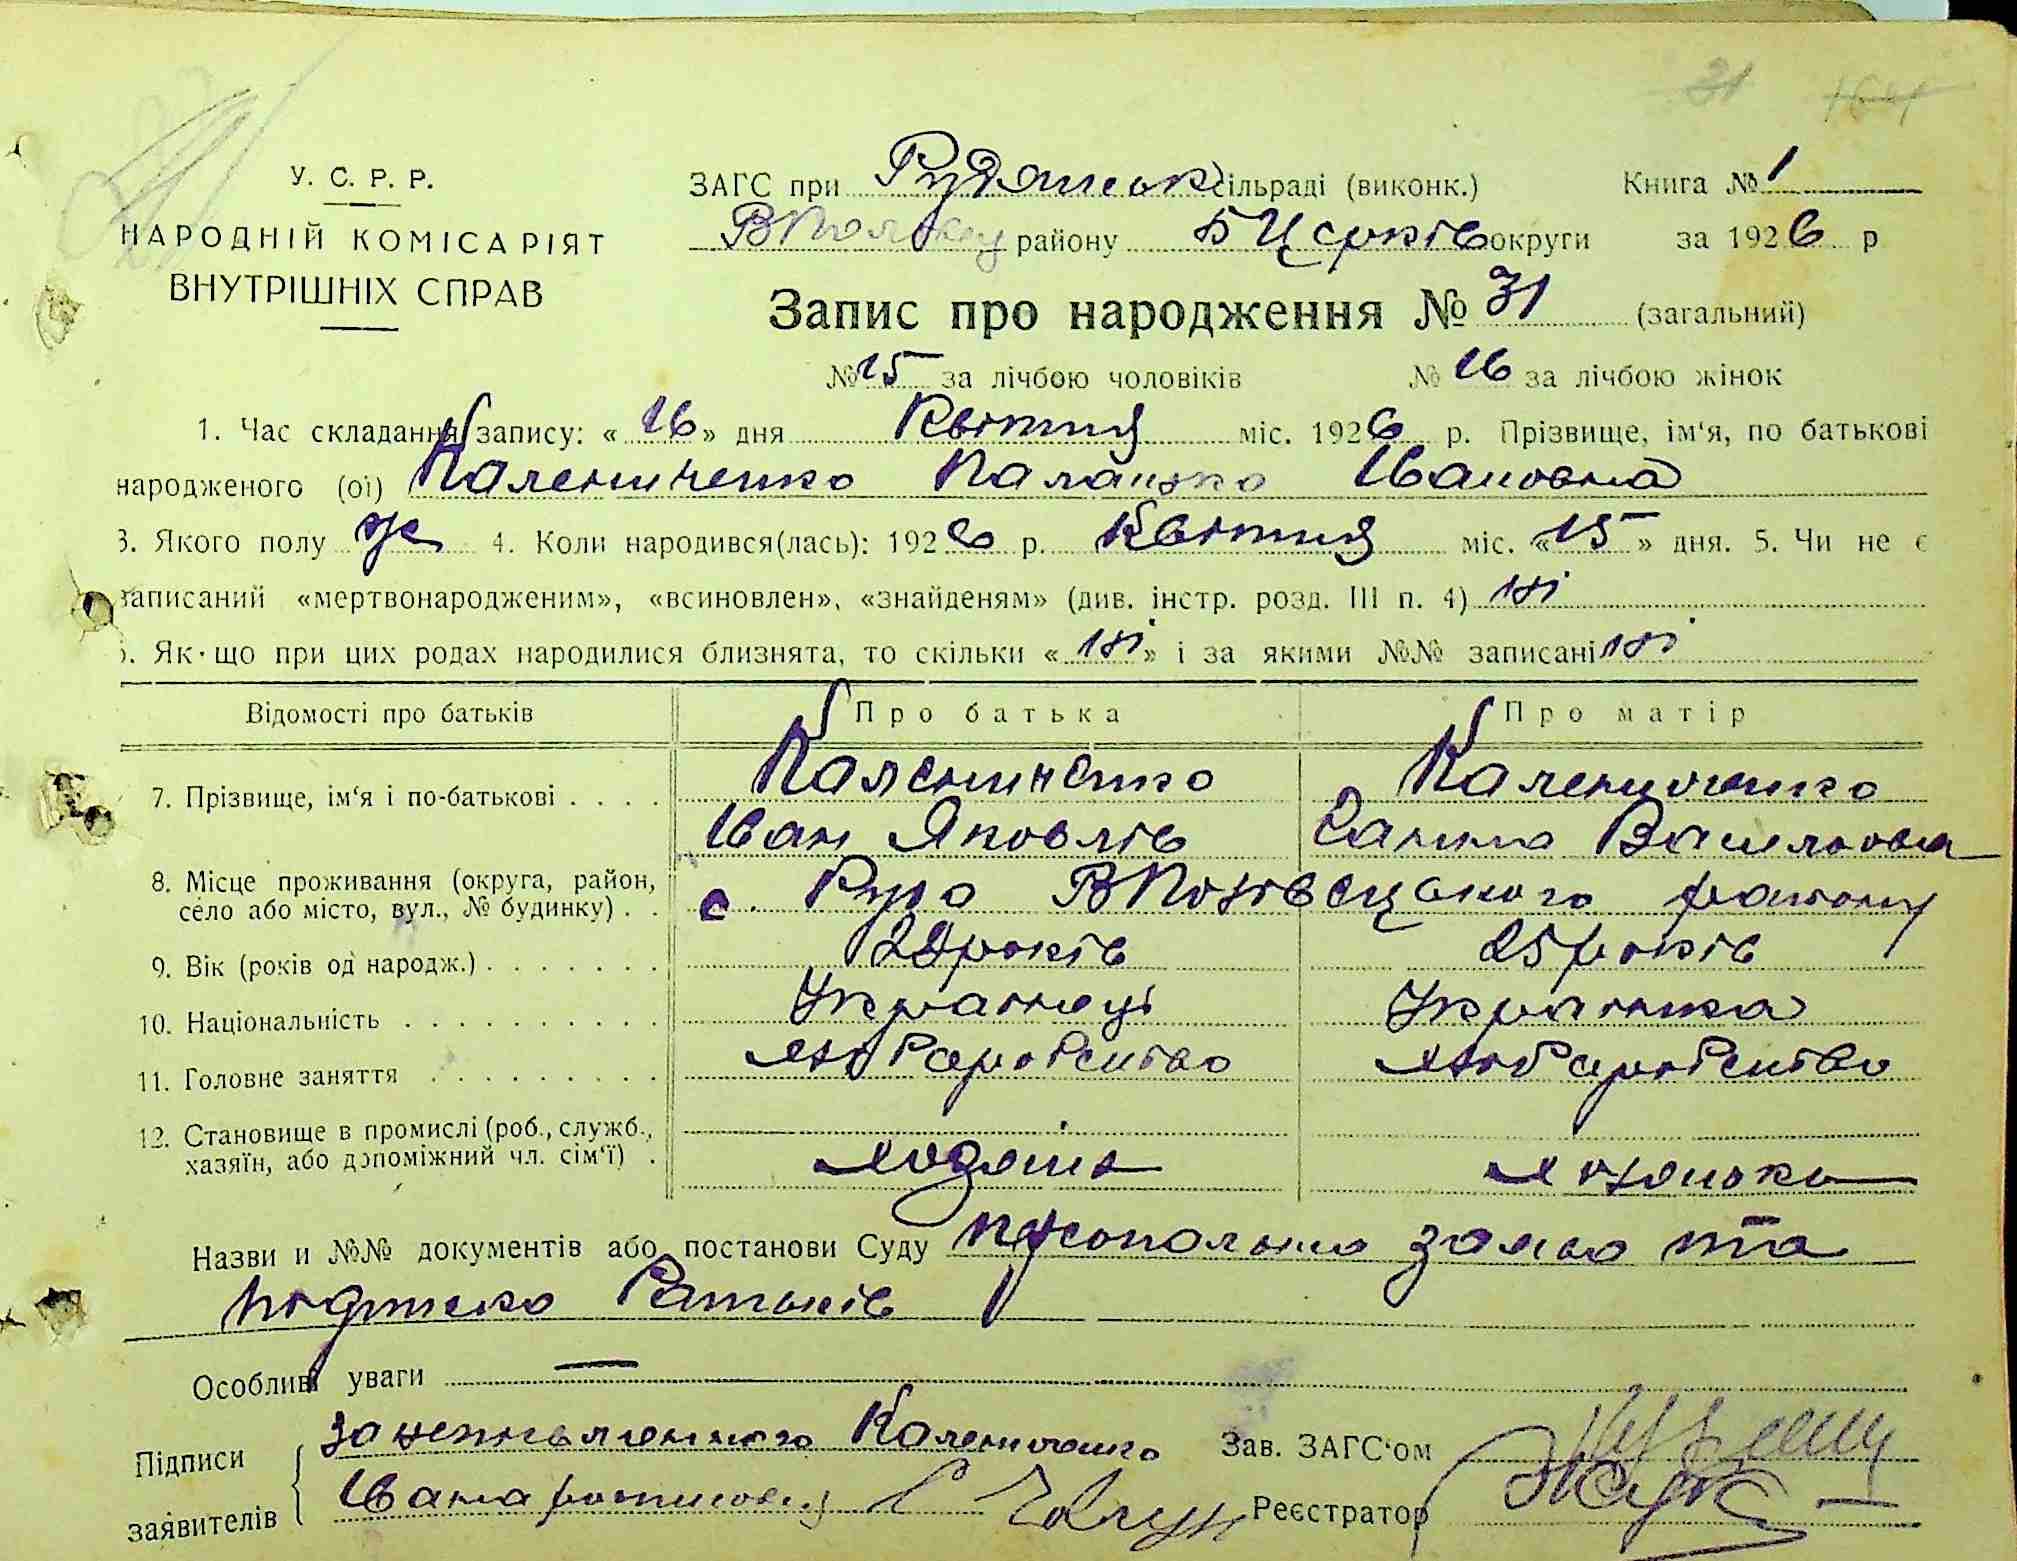 31 164
У. С. Р. Р.
НАРОДНІЙ КОМІСАРІЯТ
ВНУТРІШНІХ СПРАВ
ЗАГС при Рудянськ сільраді (виконк.) Книга № 1
району БЦерків округи за 1926 р
Запис про народження № 31 (загальний)
№ 15 за лічбою чоловіків № 16 за лічбою жінок
1. Час складання запису: « 16 » дня Квітня міс. 1926 р. Прізвище, ім'я, по батькові
народженого (ої) Калениченко Палажка Івановна
3. Якого полу ж 4. Коли народився(лась): 1926 р. Квітня міс. « 15 » дня. 5. Чи не є
записаний «мертвонародженим», «всиновлен», «знайденям» (див. інстр. розд. III п. 4) ні
6. Як-що при цих родах народилися близнята, то скільки « ні » і за якими №№ записані ні
Відомості про батьків Про батька Про матір
7. Прізвище, ім'я і по-батькові . . . . Калениченко Калениченко
Іван Яковлів Ганна Васильовна
8. Місце проживання (округа, район,
село або місто, вул., № будинку) . . с. Руда району
9. Вік (років од народж.) . . . . . . . років 25 років
10. Національність . . . . . . . . . . Українець Українка
11. Головне заняття . . . . . . . . . хліборобство хліборобство
12. Становище в промислі (роб., служб.,
хазяїн, або допоміжний чл. сім'ї) . хозяїн хозяйка
Назви и №№ документів або постанови Суду заява та
подписка батьків
Особливі уваги —
Підписи заявителів за неписьменного Калениченко
Івана росписався
Зав. ЗАГС'ом
Реєстратор